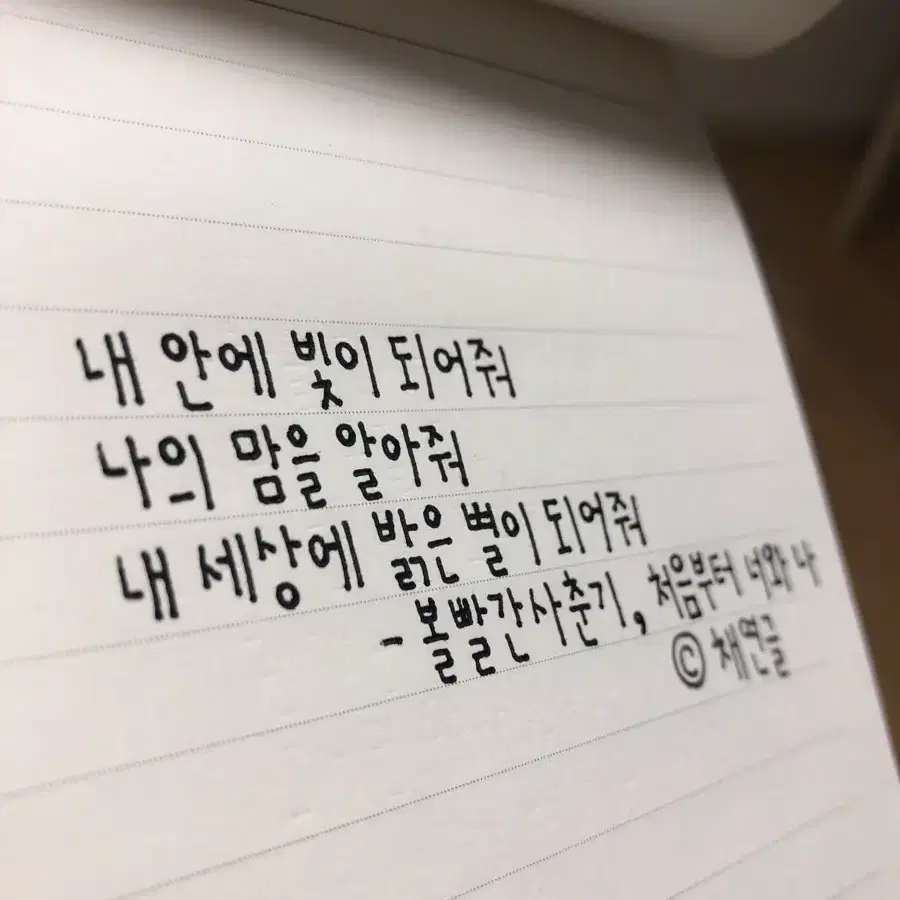 내 안에 빛이 되어줘
나의 맘을 알아줘
내 세상에 밝은 별이 되어줘
- 볼빨간사춘기, 처음부터 너와 나
© 채연글